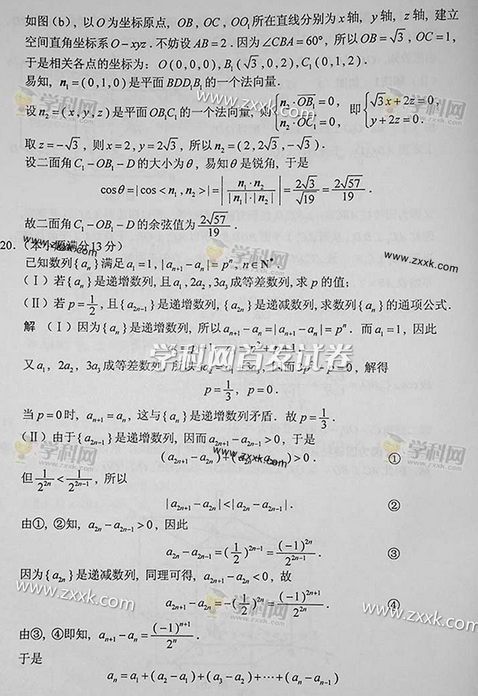 如图(b)，以O为坐标原点，OB，OC，OO₁所在直线分别为x轴，y轴，z轴，建立
空间直角坐标系O-xyz．不妨设AB=2．因为∠CBA=60°，所以OB=√3，OC=1，
于是相关各点的坐标为：O(0,0,0)，B₁(√3,0,2)，C₁(0,1,2)．
易知，n₁=(0,1,0)是平面BDD₁B₁的一个法向量．
设n₂=(x,y,z)是平面OB₁C₁的一个法向量，则{n₂·OB₁=0，n₂·OC₁=0， 即{√3x+2z=0，y+2z=0．
取z=-√3，则x=2，y=2√3，所以n₂=(2,2√3,-√3)．
设二面角C₁-OB₁-D的大小为θ，易知θ是锐角，于是
cosθ=|cos<n₁,n₂>|=|n₁·n₂/(|n₁|·|n₂|)|=2√3/√19=2√57/19．
故二面角C₁-OB₁-D的余弦值为2√57/19．
20．（本小题满分13分）
已知数列{aₙ}满足a₁=1，|aₙ₊₁-aₙ|=pⁿ，n∈N*．
(Ⅰ)若{aₙ}是递增数列，且a₁，2a₂，3a₃成等差数列，求p的值；
(Ⅱ)若p=1/2，且{a₂ₙ₋₁}是递增数列，{a₂ₙ}是递减数列，求数列{aₙ}的通项公式．
解 (Ⅰ)因为{aₙ}是递增数列，所以aₙ₊₁-aₙ=|aₙ₊₁-aₙ|=pⁿ．而a₁=1，因此
又a₁，2a₂，3a₃成等差数列，所以 =0，解得
p=1/3，p=0．
当p=0时，aₙ₊₁=aₙ，这与{aₙ}是递增数列矛盾．故p=1/3．
(Ⅱ)由于{a₂ₙ₋₁}是递增数列，因而a₂ₙ₊₁-a₂ₙ₋₁>0，于是
(a₂ₙ₊₁-a₂ₙ)+(a₂ₙ-a₂ₙ₋₁)>0． ①
但1/2²ⁿ<1/2²ⁿ⁻¹，所以
|a₂ₙ₊₁-a₂ₙ|<|a₂ₙ-a₂ₙ₋₁|． ②
由①，②知，a₂ₙ-a₂ₙ₋₁>0，因此
a₂ₙ-a₂ₙ₋₁=(1/2)²ⁿ⁻¹=(-1)²ⁿ/2²ⁿ⁻¹． ③
因为{a₂ₙ}是递减数列，同理可得，a₂ₙ₊₁-a₂ₙ<0，故
a₂ₙ₊₁-a₂ₙ=-(1/2)²ⁿ=(-1)²ⁿ⁺¹/2²ⁿ． ④
由③，④即知，aₙ₊₁-aₙ=(-1)ⁿ⁺¹/2ⁿ．
于是
aₙ=a₁+(a₂-a₁)+(a₃-a₂)+⋯+(aₙ-aₙ₋₁)
学科网首发试卷
学科网
www.zxxk.com